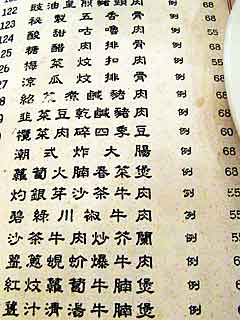 122 豉油皇煎豬頭肉 例 68
123 秘製五香骨 例
124 酸甜咕嚕肉 例 55
125 糖醋肉排骨 例 68
126 梅菜炆扣肉 例 55
127 涼瓜炆排骨 例 68
菜煮鹹豬肉 例 68
韭菜豆乾鹹豬肉 例 68
欖菜肉碎四季豆 例 55
潮式炸大腸 例 68
蘿蔔火腩春菜煲 例 68
灼銀芽沙茶牛肉 例 68
碧綠川椒牛肉 例 68
沙茶牛肉炒芥蘭 例 68
薑蔥蜆蚧爆牛肉 例 68
紅炆蘿蔔牛腩煲 例
薑汁清湯牛腩煲 例